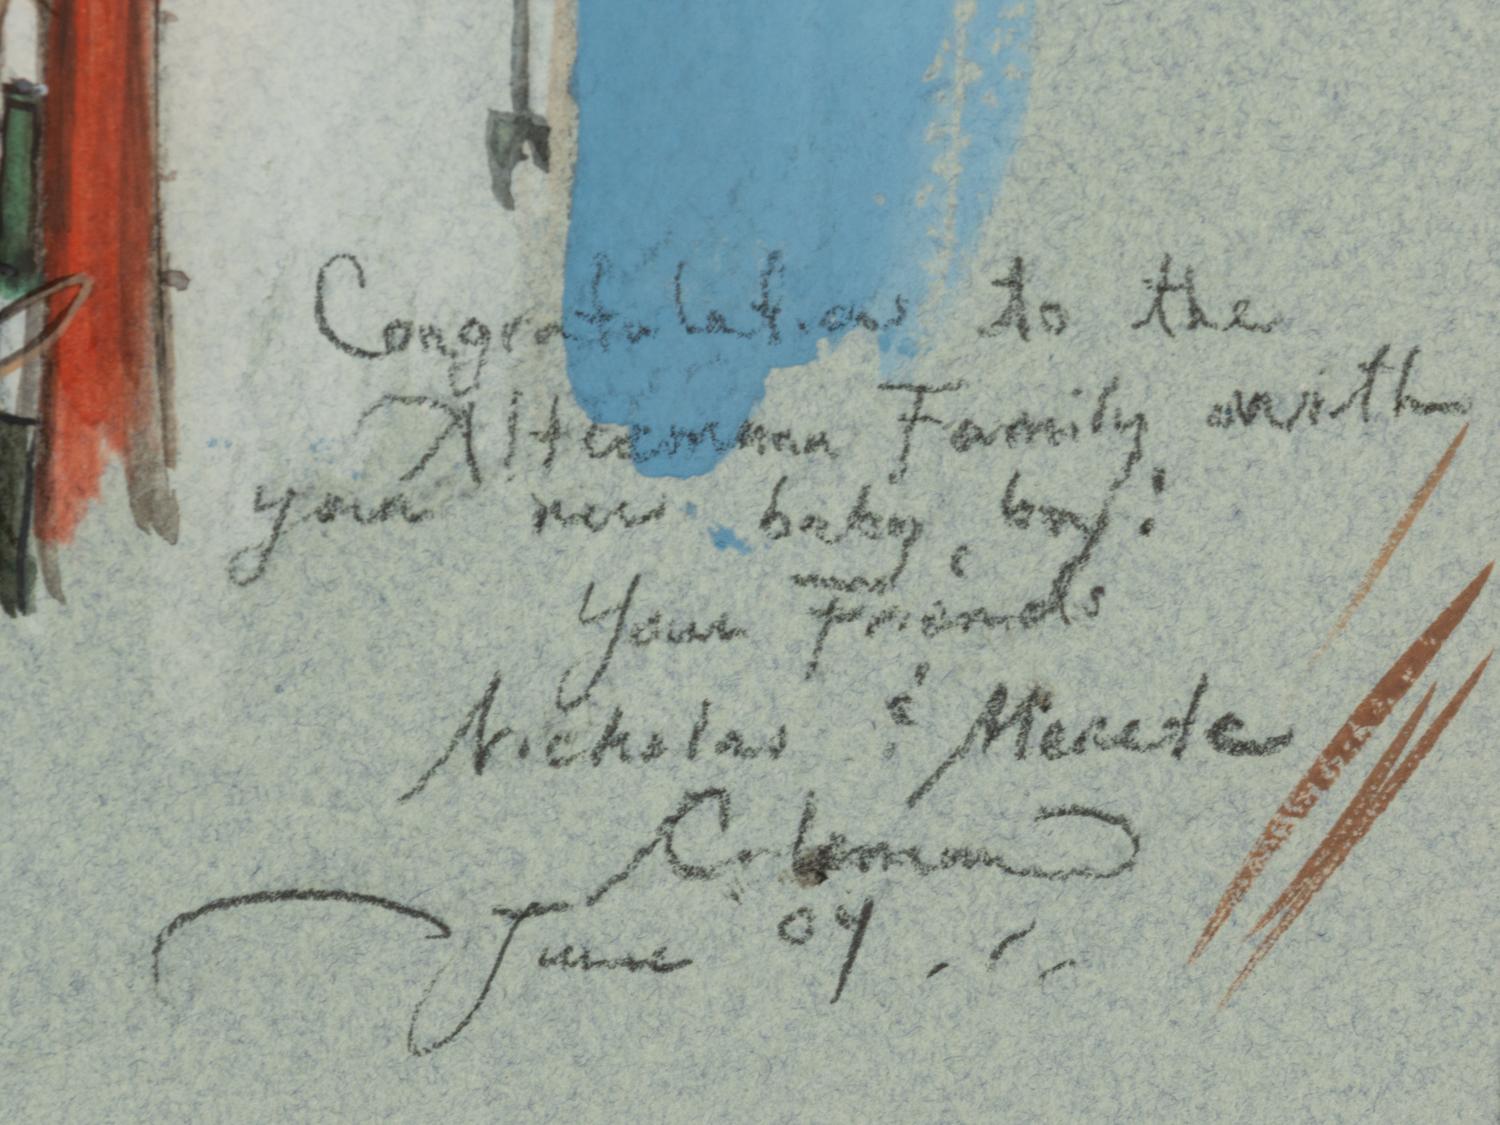 Congratulations to the
Altermann Family with
your new baby boy!
Your Friends
Nicholas & Merete
Coleman
June 04